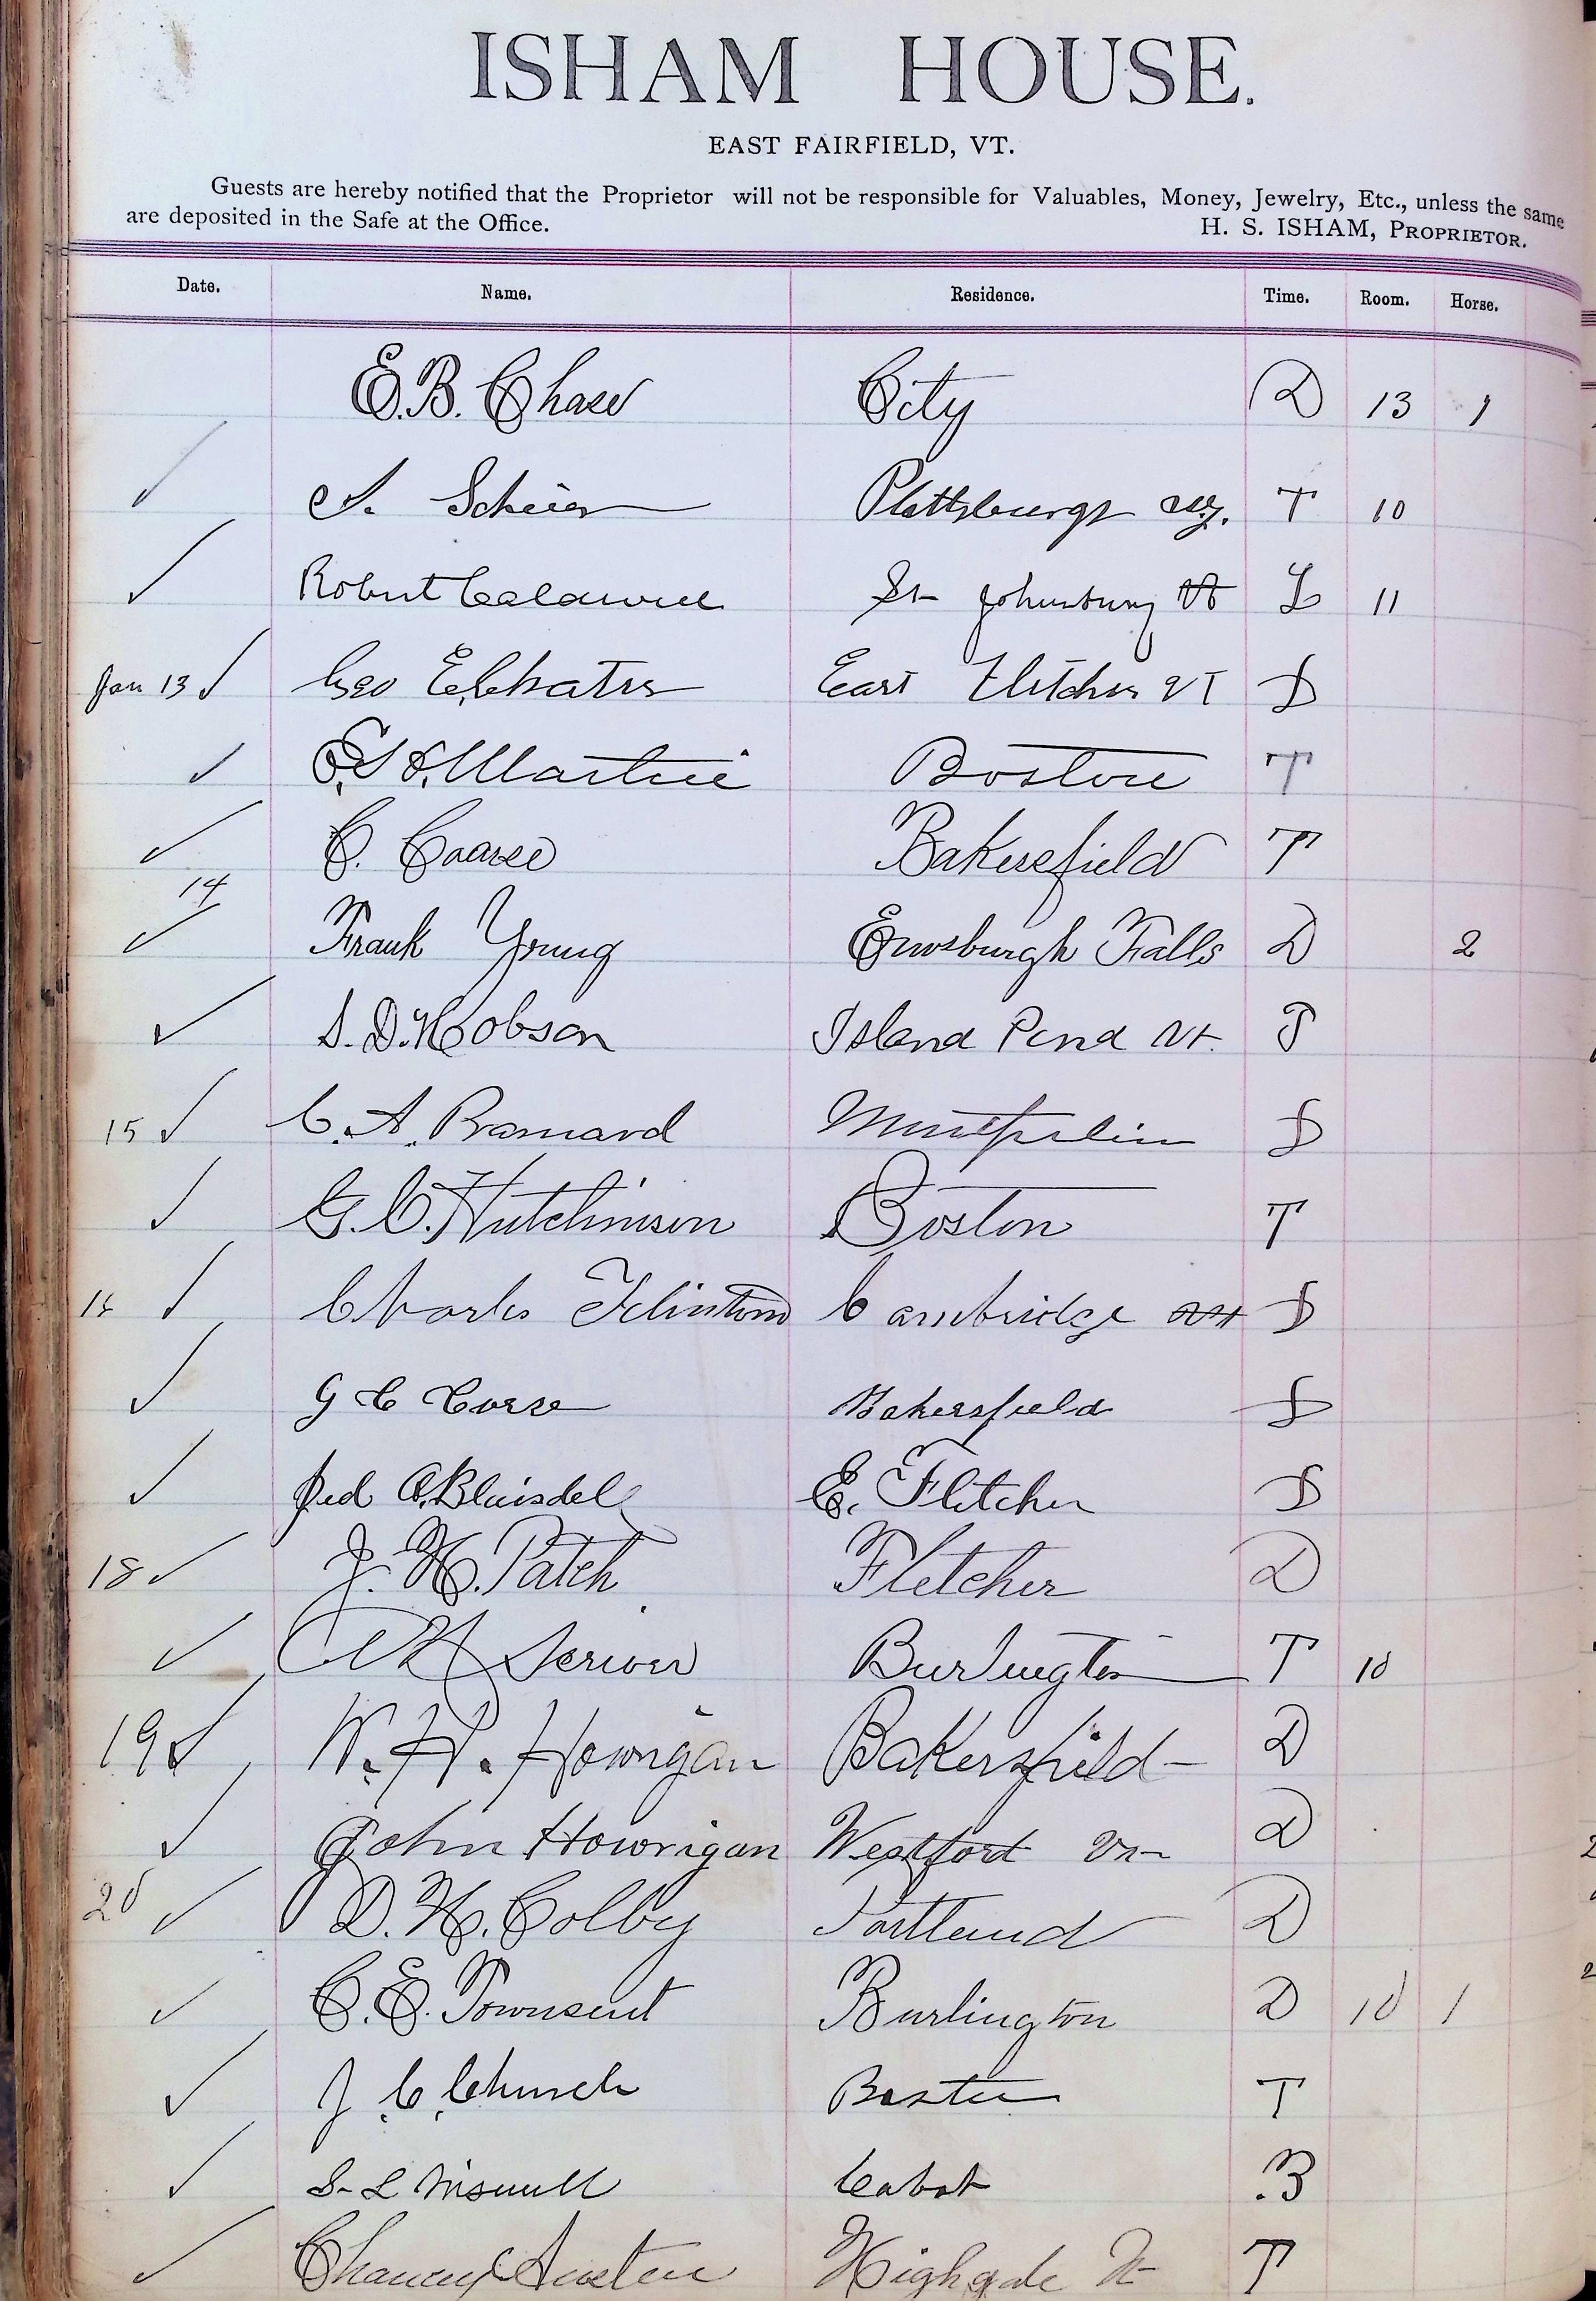 ISHAM HOUSE.
EAST FAIRFIELD, VT.
Guests are hereby notified that the Proprietor will not be responsible for Valuables, Money, Jewelry, Etc., unless the same
are deposited in the Safe at the Office. H. S. ISHAM, PROPRIETOR.
Date. Name. Residence. Time. Room. Horse.
E. B. Chase City D 13 1
Plattsburgh N.Y. T 10
Robert Caldwell St Johnsbury Vt 11
Jan 13 Geo East Fletcher VT D
Martin Boston T
C. Bakersfield T
14
Frank Young Enosburgh Falls D 2
S. D. Hobson Island Pond Vt. T
15 C. A. Barnard Montpelier D
G. C. Hutchinson Boston T
Charles Cambridge D
G C Corse Bakersfield D
A. Blaisdell E. Fletcher D
18 J. H. Patch Fletcher D
Scriver Burlington T 10
19 W. H. Howrigan Bakersfield - D
John Howrigan Westford D
20 D. H. Colby Portland D
C. E. Townsent Burlington D 10 1
J. C. Church Boston T
S. L. Cabot B
Chancey Austin Highgate Vt T